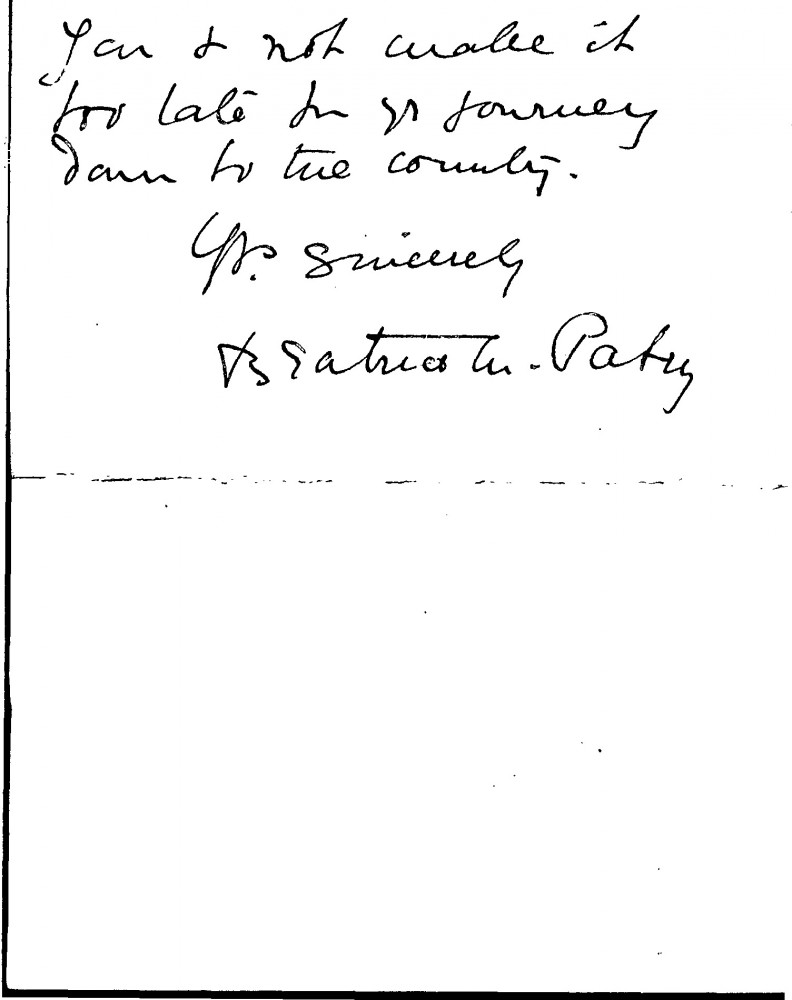 you & not make it
too late for yr journey
down to the country.
Yrs. Sincerely
Beatrice M.